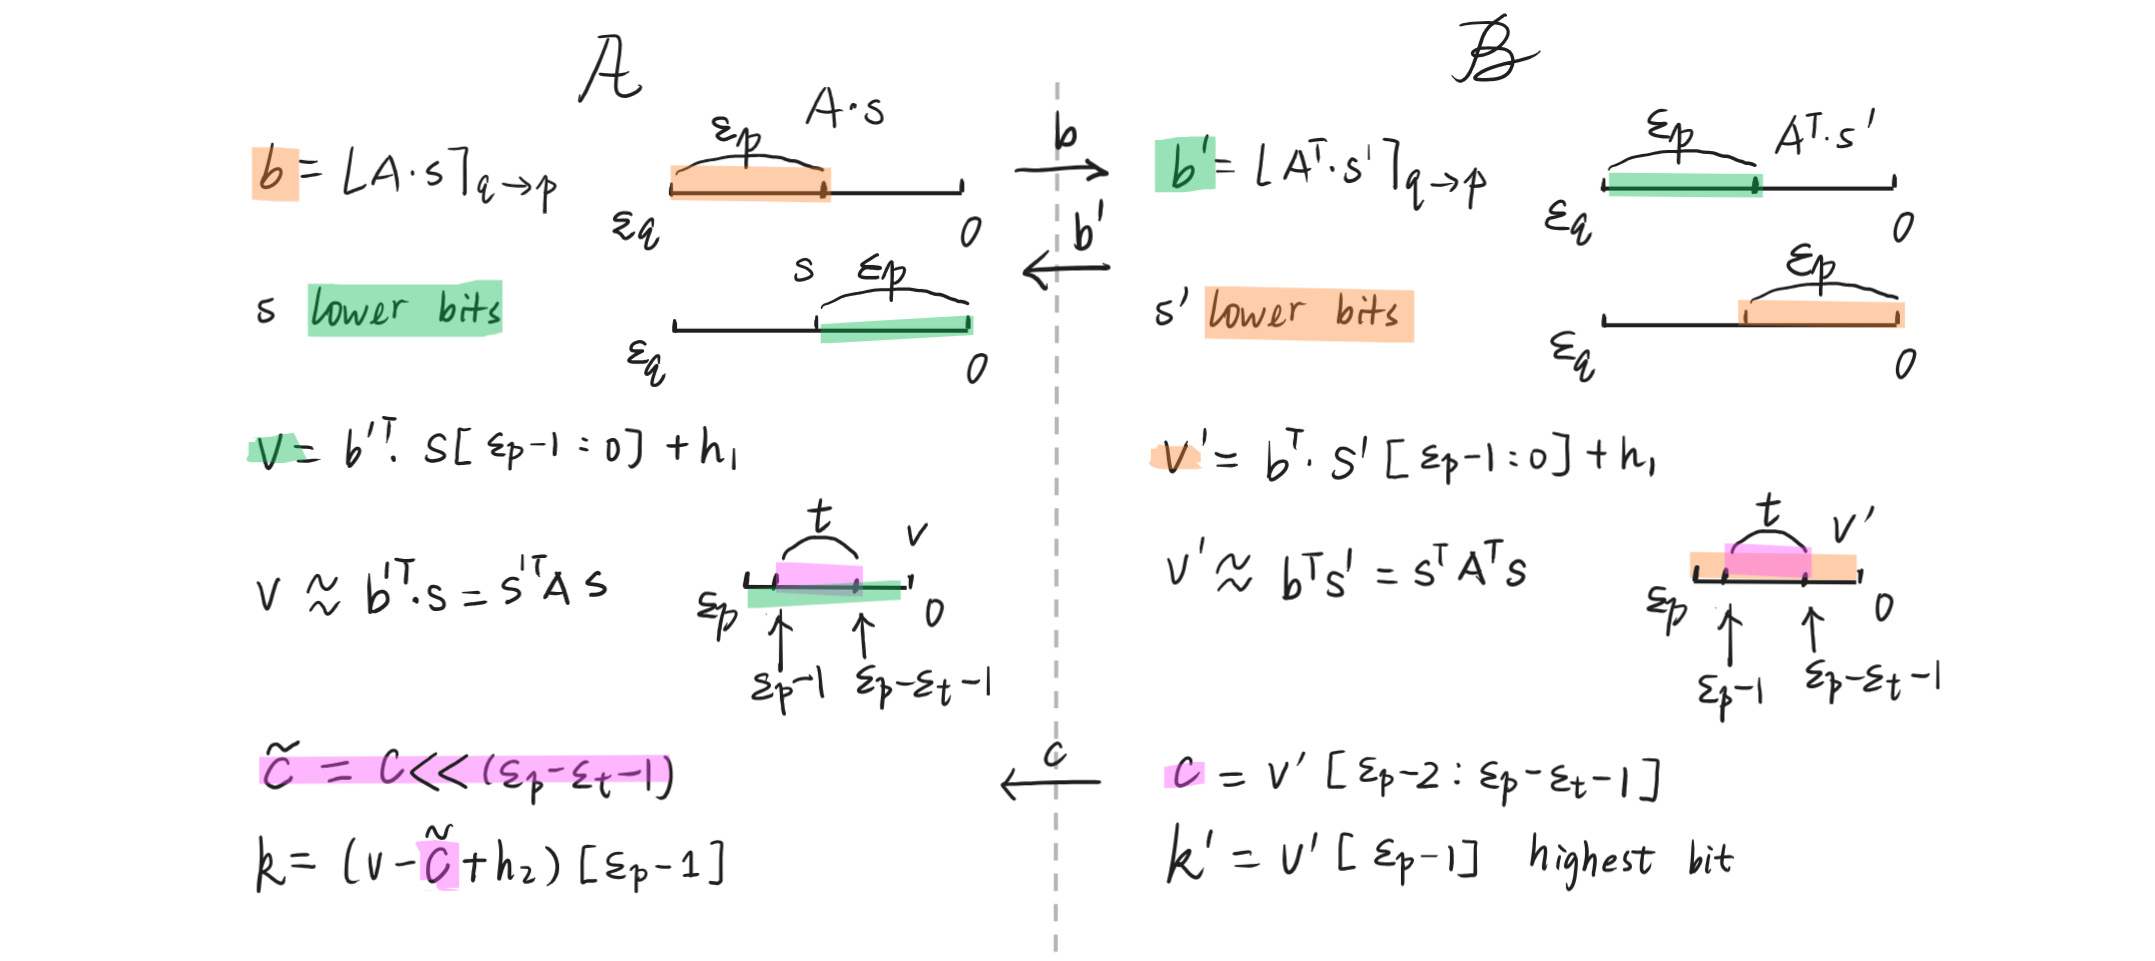 A
b = ⌊A·s⌉q→p
εp
A·s
εq
0
s lower bits
s
εp
εq
0
v = b'ᵀ· s[εp-1:0] + h₁
v ≈ b'ᵀ·s = s'ᵀA s
t
v
εp
0
εp-1
εp-εt-1
c̃ = c<<(εp-εt-1)
k = (v-c̃+h₂)[εp-1]
b
b'
c
B
b' = ⌊Aᵀ·s'⌉q→p
εp
Aᵀ·s'
εq
0
s' lower bits
εp
εq
0
v' = bᵀ· s'[εp-1:0] + h₁
v' ≈ bᵀs' = sᵀAᵀs
t
v'
εp
0
εp-1
εp-εt-1
c = v'[εp-2:εp-εt-1]
k' = v'[εp-1] highest bit